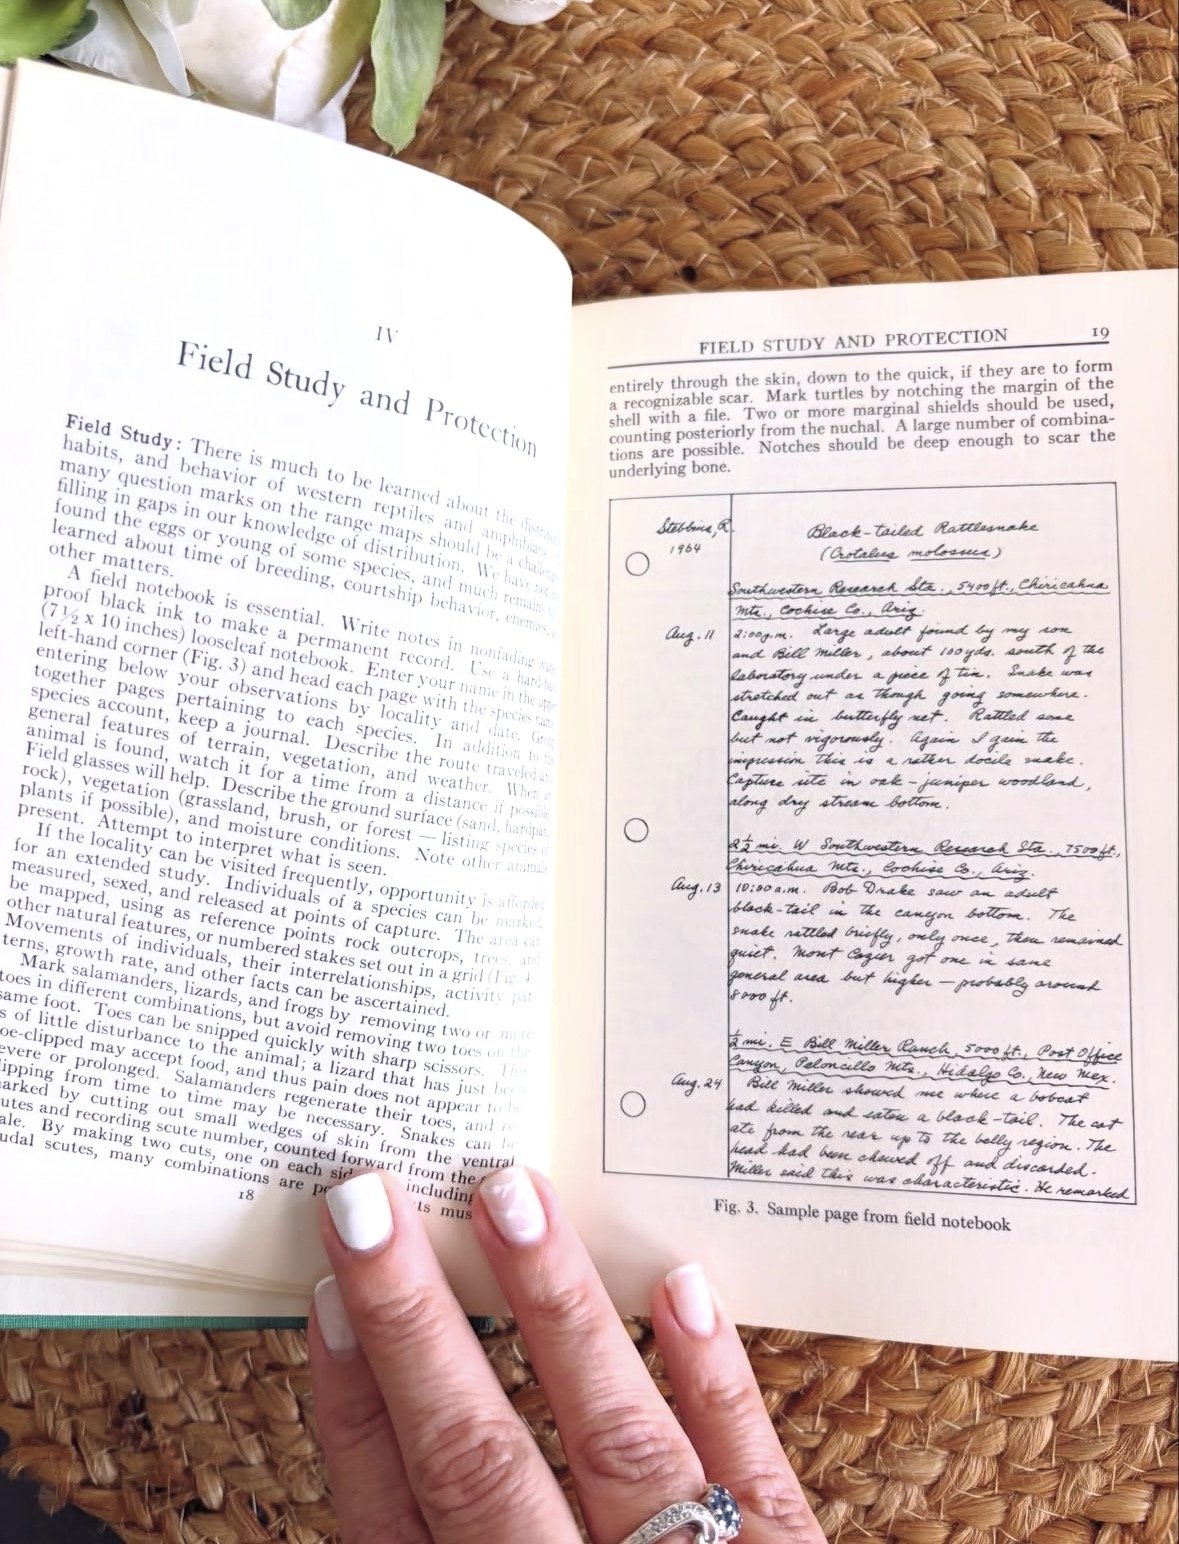 IV
Field Study and Protection
Field Study: There is much to be learned about the
habits, and behavior of western reptiles and amphibians.
many question marks on the range maps should be a
filling in gaps in our knowledge of distribution. We have not
found the eggs or young of some species, and much remains
learned about time of breeding, courtship behavior, enemies,
other matters.
A field notebook is essential. Write notes in nonfading
proof black ink to make a permanent record. Use a
(7½ x 10 inches) looseleaf notebook. Enter your name in the upper
left-hand corner (Fig. 3) and head each page with the species name
entering below your observations by locality and date. Group
together pages pertaining to each species. In addition to the
species account, keep a journal. Describe the route traveled and
general features of terrain, vegetation, and weather. When an
animal is found, watch it for a time from a distance if possible.
Field glasses will help. Describe the ground surface (sand, hardpan,
rock), vegetation (grassland, brush, or forest — listing species of
plants if possible), and moisture conditions. Note other animals
present. Attempt to interpret what is seen.
If the locality can be visited frequently, opportunity is afforded
for an extended study. Individuals of a species can be marked,
measured, sexed, and released at points of capture. The area can
be mapped, using as reference points rock outcrops, trees, and
other natural features, or numbered stakes set out in a grid (Fig. 4
Movements of individuals, their interrelationships, activity pat-
terns, growth rate, and other facts can be ascertained.
Mark salamanders, lizards, and frogs by removing two or more
toes in different combinations, but avoid removing two toes on the
same foot. Toes can be snipped quickly with sharp scissors. This
s of little disturbance to the animal; a lizard that has just been
oe-clipped may accept food, and thus pain does not appear to be
evere or prolonged. Salamanders regenerate their toes, and re-
lipping from time to time may be necessary. Snakes can be
arked by cutting out small wedges of skin from the ventral
utes and recording scute number, counted forward from the
ale. By making two cuts, one on each sid including
udal scutes, many combinations are ts mus
18
FIELD STUDY AND PROTECTION 19
entirely through the skin, down to the quick, if they are to form
a recognizable scar. Mark turtles by notching the margin of the
shell with a file. Two or more marginal shields should be used,
counting posteriorly from the nuchal. A large number of combina-
tions are possible. Notches should be deep enough to scar the
underlying bone.
Stebbins, R.
1964
Black-tailed Rattlesnake
(Crotalus molossus)
Southwestern Research Sta., 5400 ft., Chiricahua
Mts., Cochise Co., Ariz.
Aug. 11 2:00 p.m. Large adult found by my son
and Bill Miller, about 100 yds. south of the
laboratory under a piece of tin. Snake was
stretched out as though going somewhere.
Caught in butterfly net. Rattled some
but not vigorously. Again I gain the
impression this is a rather docile snake.
Capture site in oak-juniper woodland,
along dry stream bottom.
2½ mi. W Southwestern Research Sta., 7500 ft.,
Chiricahua Mts., Cochise Co., Ariz.
Aug. 13 10:00 a.m. Bob Drake saw an adult
black-tail in the canyon bottom. The
snake rattled briefly, only once, then remained
quiet. Mont Cazier got one in same
general area but higher — probably around
8000 ft.
½ mi. E Bill Miller Ranch, 5000 ft., Post Office
Canyon, Peloncillo Mts., Hidalgo Co., New Mex.
Aug. 24 Bill Miller showed me where a bobcat
had killed and eaten a black-tail. The cat
ate from the rear up to the belly region. The
head had been chewed off and discarded.
Miller said this was characteristic. He remarked
Fig. 3. Sample page from field notebook